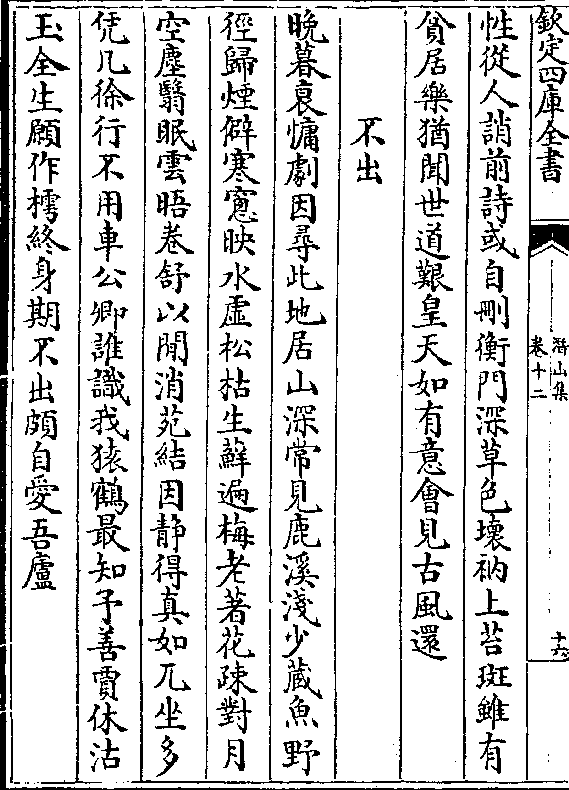 欽定四庫全書
潛山集
卷十二
十六
性從人誚前詩或自刪衡門深草色壞衲上苔斑雖有
貧居樂猶聞世道艱皇天如有意會見古風還
不出
晚暮衰慵劇因尋此地居山深常見鹿溪淺少蔵魚野
徑歸煙僻寒窻映水虛松枯生蘚遍梅老著花疎對月
空塵翳眠雲晤卷舒以閒消菀結因静得真如兀坐多
凭几徐行不用車公卿誰識我猿鶴最知予善賈休沽
玉全生願作樗終身期不出頗自愛吾廬